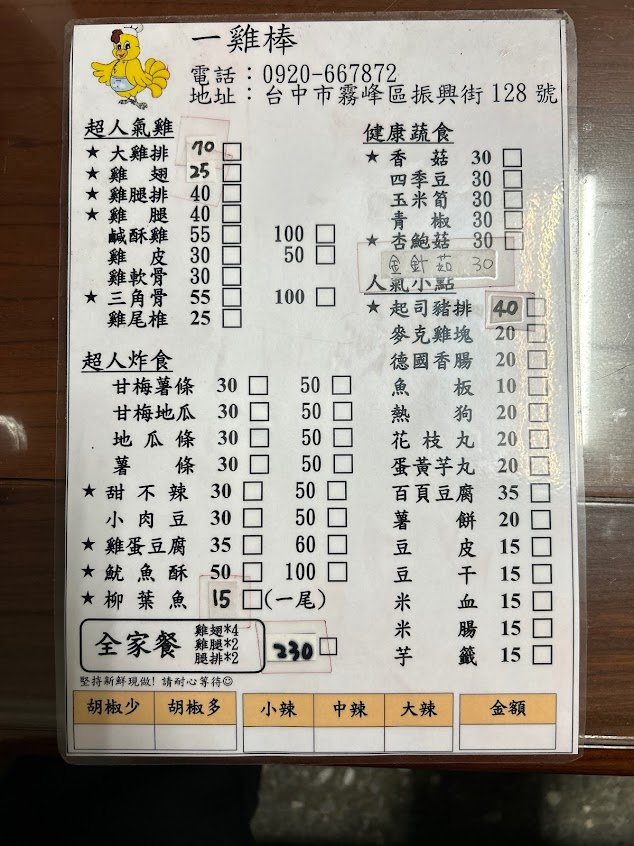 一雞棒
電話：0920-667872
地址：台中市霧峰區振興街128號
超人氣雞
★ 大雞排 70 □
★ 雞翅 25 □
★ 雞腿排 40 □
★ 雞腿 40 □
鹹酥雞 55 □ 100 □
雞皮 30 □ 50 □
雞軟骨 30 □
★ 三角骨 55 □ 100 □
雞尾椎 25 □
超人炸食
甘梅薯條 30 □ 50 □
甘梅地瓜 30 □ 50 □
地瓜條 30 □ 50 □
薯條 30 □ 50 □
★ 甜不辣 30 □ 50 □
小肉豆 30 □ 50 □
★ 雞蛋豆腐 35 □ 60 □
★ 魷魚酥 50 □ 100 □
★ 柳葉魚 15 □(一尾)
全家餐
雞翅*4
雞腿*2
腿排*2
230 □
堅持新鮮現做! 請耐心等待☺
健康蔬食
★ 香菇 30 □
四季豆 30 □
玉米筍 30 □
青椒 30 □
★ 杏鮑菇 30 □
金針菇 30
人氣小點
★ 起司豬排 40 □
麥克雞塊 20 □
德國香腸 20 □
魚板 10 □
熱狗 20 □
花枝丸 20 □
蛋黃芋丸 20 □
百頁豆腐 35 □
薯餅 20 □
豆皮 15 □
豆干 15 □
米血 15 □
米腸 15 □
芋籤 15 □
胡椒少 胡椒多 小辣 中辣 大辣 金額